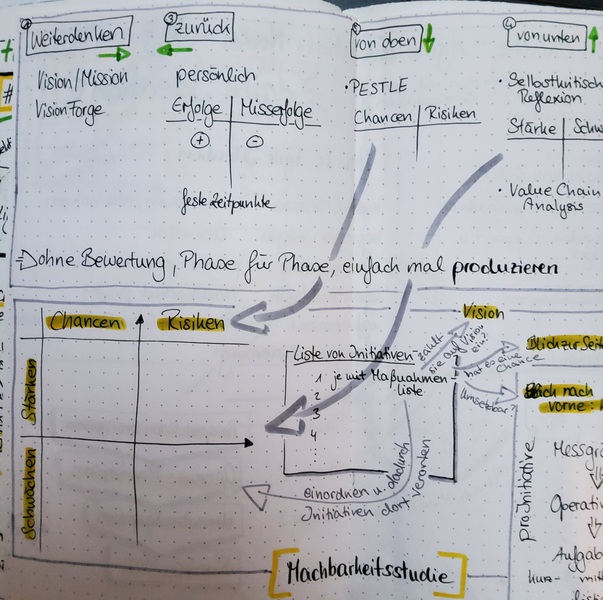 ① Weiterdenken
Vision/Mission
Vision Forge
② zurück
persönlich
Erfolge | Misserfolge
⊕ | ⊖
feste Zeitpunkte
von oben
· PESTLE
Chancen | Risiken
④ von unten
· Selbstkritisch
Reflexion
Stärke | Schw
· Value Chain
Analysis
⇒ ohne Bewertung, Phase für Phase, einfach mal produzieren
Chancen
Risiken
Stärken
Schwächen
Liste von Initiativen
1 je mit Maßnahmen-
liste
2
3
4
zahlt
sie auf Vision
ein?
Vision
hat es eine
Chance
Blick zur Seite
Umsetzbar?
Blick nach
vorne:
einordnen u. dadurch
Initiativen dort verorten
pro Initiative
Messgrö
Operativ
Aufgab
kurz- mitt
Machbarkeitsstudie
#